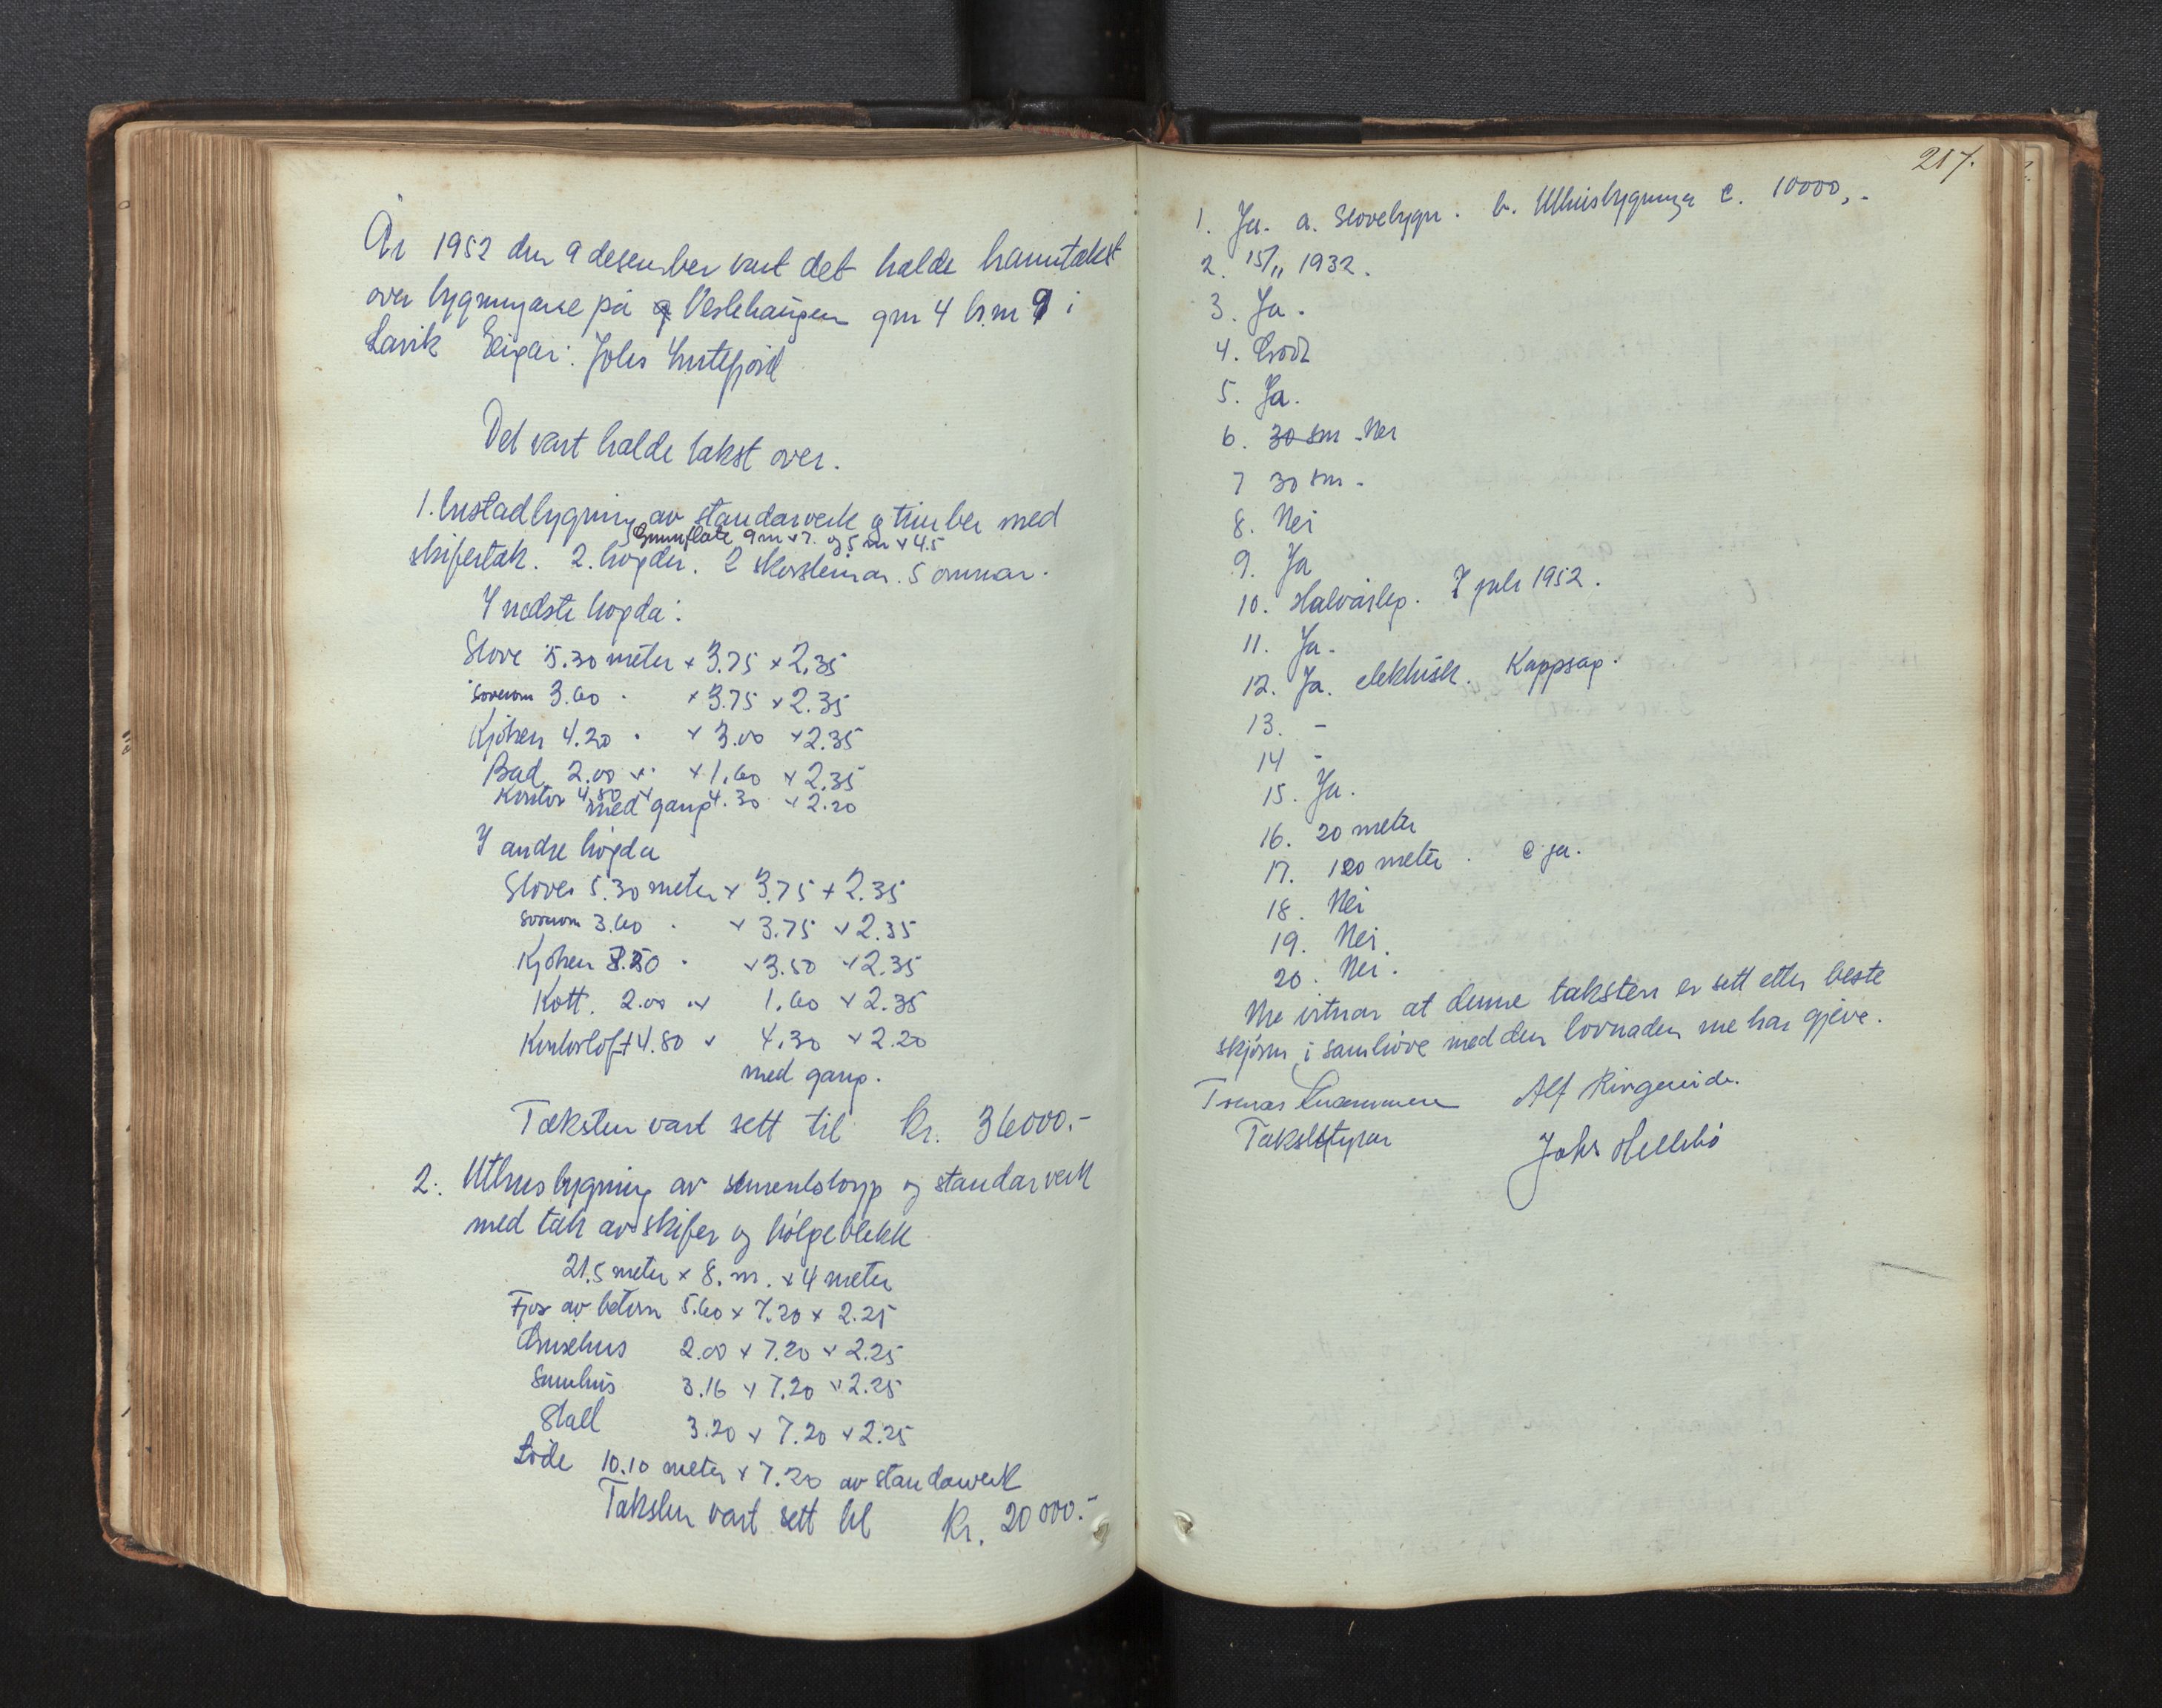 År 1952 den 9 desember vart det halde branntakst
over bygningane på Veslehaugen gnr 4 br.nr 9 i
Lavik Eigar: Johs Instefjord
Det vart halde takst over.
1. Instadbygning av standarverk og timber med
Grunnflate 9 m x 7. og 5 m x 4.5
skifertak. 2. høgder. 2 skorsteinar. 5 omnar.
I nedste høgda:
Stove 5.30 meter x 3.75 x 2.35
Soverom 3.60 " x 3.75 x 2.35
Kjøken 4.20 " x 3.00 x 2.35
Bad 2.00 x " x 1.60 x 2.35
Kontor 4.80 x 4.30 x 2.20
med gang
I andre høgda
Stove 5.30 meter x 3.75 x 2.35
Soverom 3.60 " x 3.75 x 2.35
Kjøken 3.50 " x 3.50 x 2.35
Kott. 2.00 x 1.60 x 2.35
Kontorloft 4.80 x 4.30 x 2.20
med gang.
Taksten vart sett til Kr. 36000.-
2. Uthusbygning av sementstøyp og standarverk
med tak av skifer og bølgeblekk
21.5 meter x 8. m. x 4 meter
Fjos av betom 5.60 x 7.20 x 2.25
Grisehus 2.00 x 7.20 x 2.25
Sauehus 3.16 x 7.20 x 2.25
Stall 3.20 x 7.20 x 2.25
Løde 10.10 meter x 7.20 av standarverk
Taksten vart sett til Kr. 20000.-
217.
1. Ja. a. Stovebygn. b. Uthusbygninga c. 10000,-
2. 15/11 1932.
3. Ja.
4. Godt
5. Ja.
6. 30 sm - Nei
7 30 sm.
8. Nei
9. Ja
10. Halvårleg. 7 juli 1952.
11. Ja.
12. Ja. elektrisk. Kappsag.
13. -
14 -
15. Ja.
16. 20 meter
17. 120 meter. c ja.
18. Nei
19. Nei.
20. Nei.
Me vitnar at denne taksten er sett etter beste
skjønn i samhøve med den lovnaden me har gjeve.
Alf Ringereide.
Takststyrar Johs Hellebø